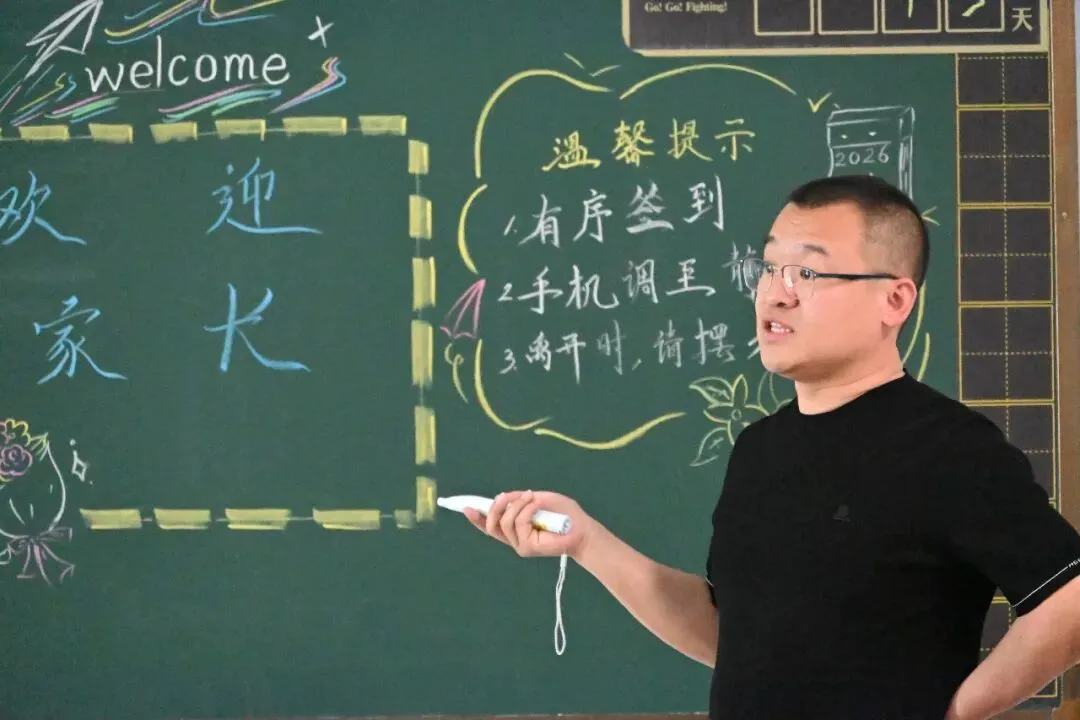 Go! Go! Fighting!
天
welcome
欢迎
家长
温馨提示
2026
1.有序签到
2.手机调至
3.离开时,请摆